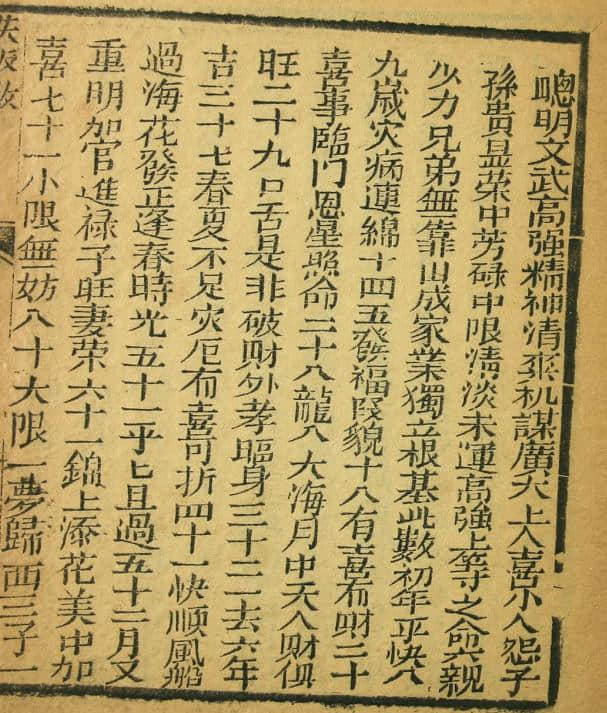 聰明文武高强精神清爽机謀廣大上人喜小人怨子
孫貴显荣中劳碌中限清淡末運高強上等之命六親
少力兄弟無靠山成家業獨立根基此數初年平快八
九歲灾病連綿十四五發福段貌十八有喜布財二十
喜事臨门恩星照命二十八龍入大海月中天人財俱
旺二十九口舌是非破財外孝臨身三十二去六年
吉三十七春夏不足灾厄有喜可折四十一快順風船
過海花發正逢春時光五十一平匕且過五十二月又
重明加官進禄子旺妻荣六十一錦上添花美中加
喜七十一小限無妨八十大限一夢歸西三子一